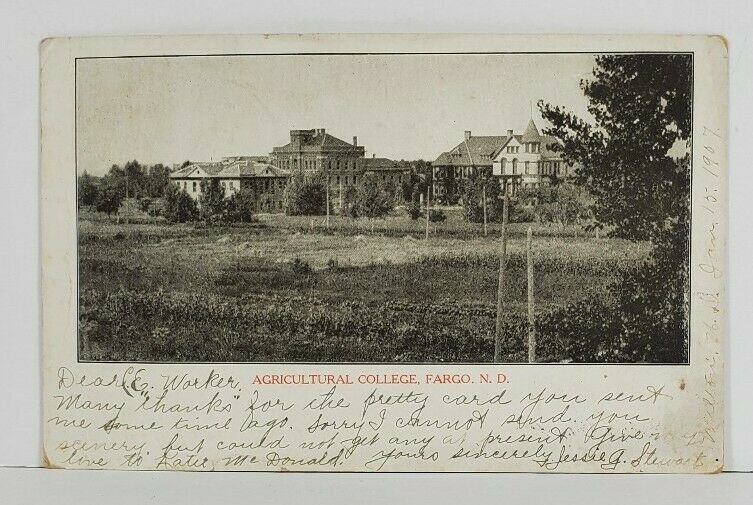 AGRICULTURAL COLLEGE, FARGO. N. D.
Dear C.E. Worker,
Many "thanks" for the pretty card you sent
me some time ago. Sorry I cannot send you
scenery but could not get any at present. Give my
love to Katie McDonald. Yours sincerely Jessie G. Stewart
N. D. Jan 15. 1907.